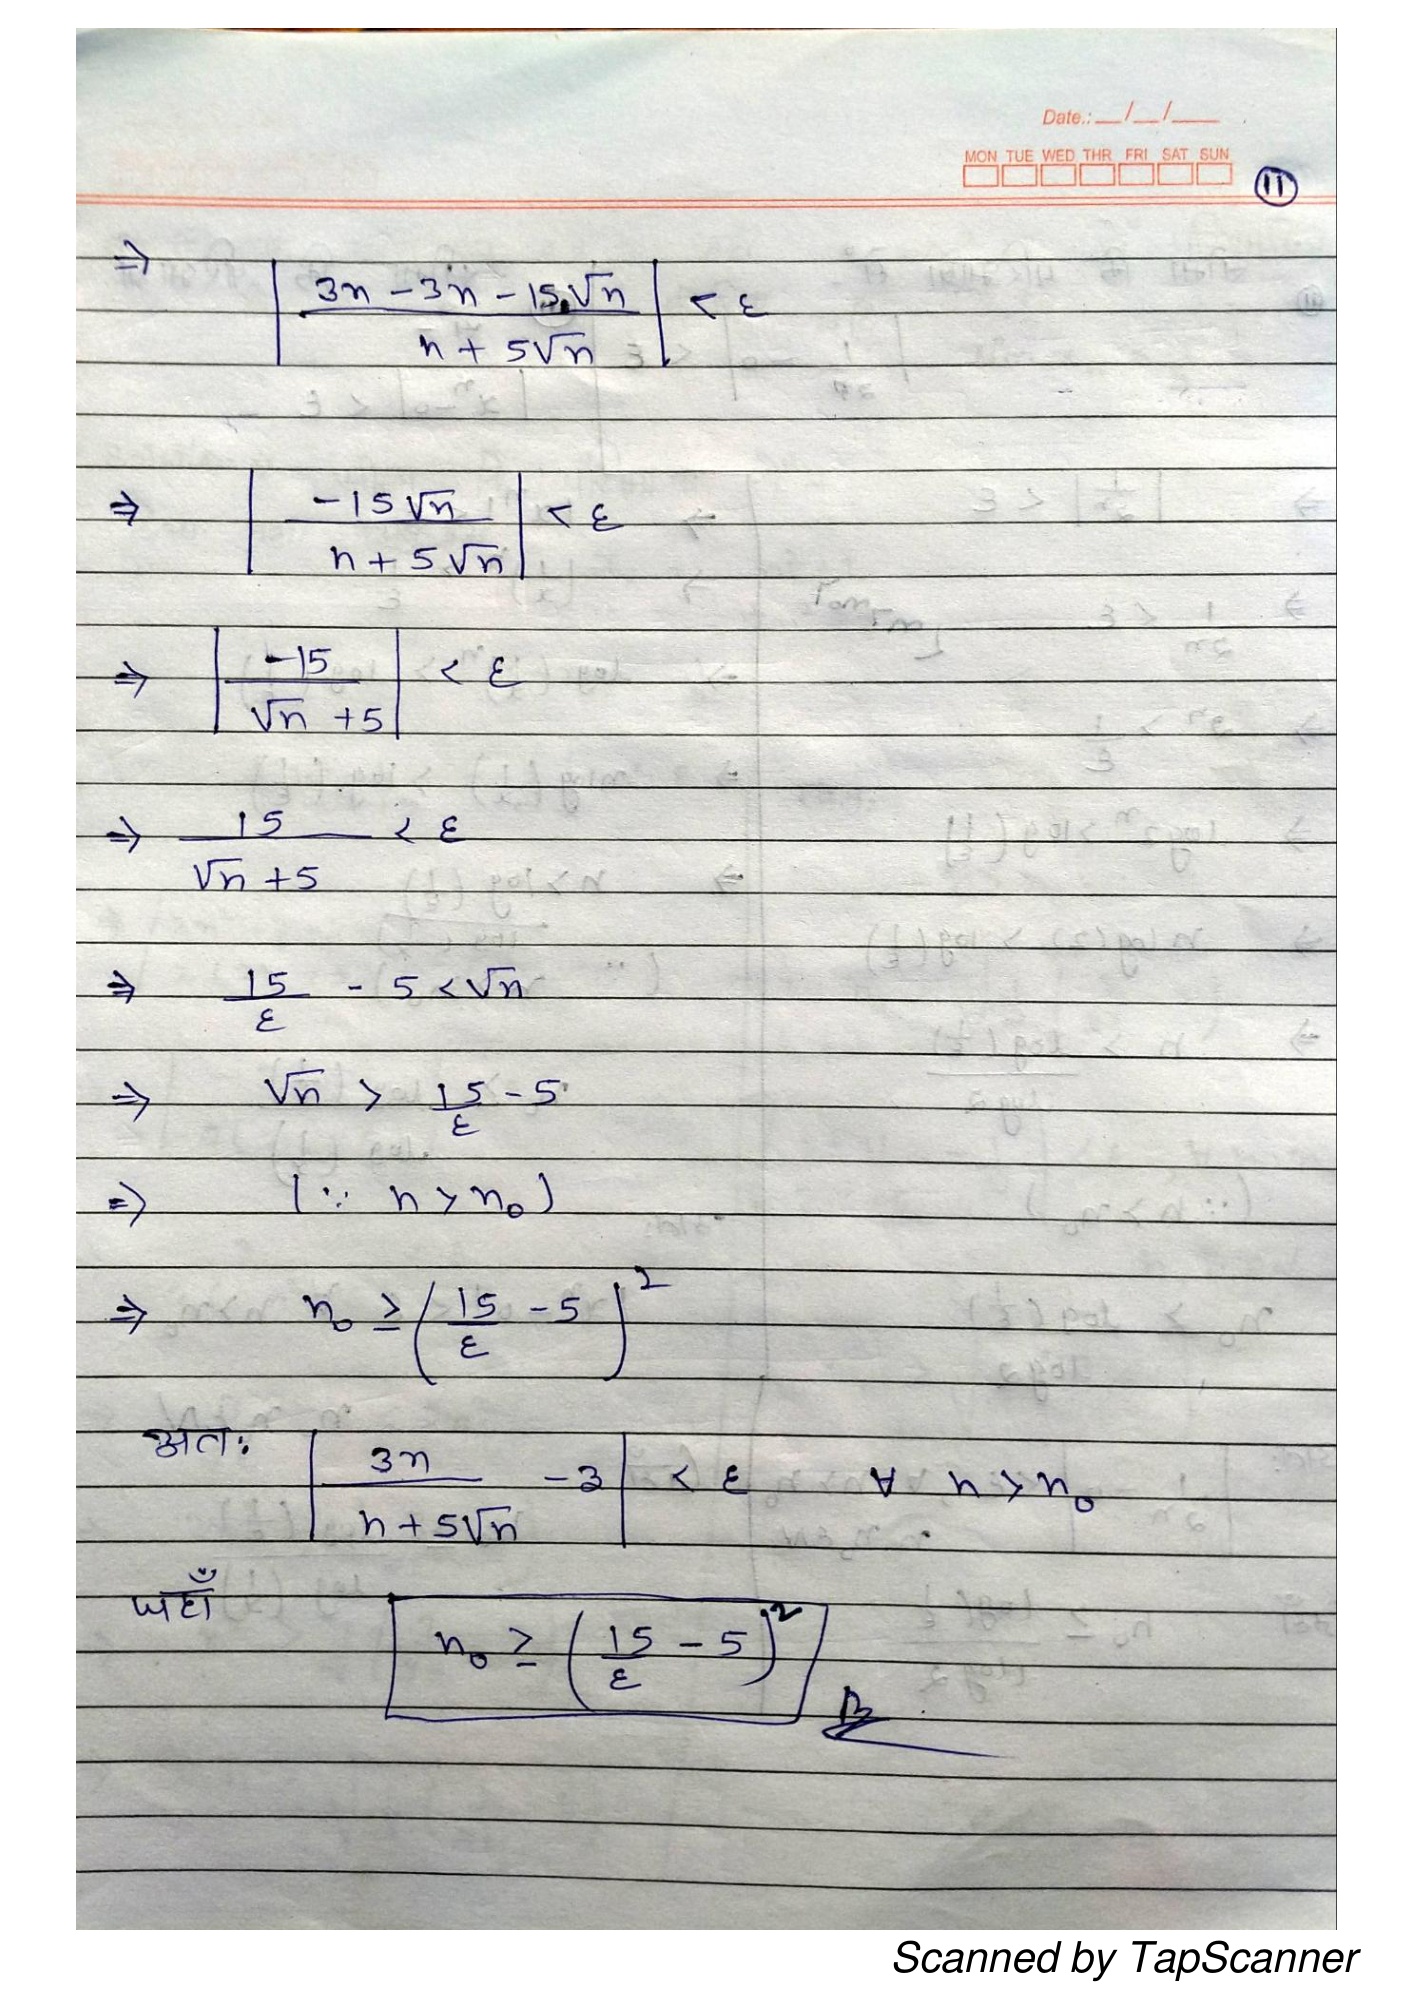 Date.: __/__/____
MON TUE WED THR FRI SAT SUN
11
⇒ | (3n - 3n - 15√n) / (n + 5√n) | < ε
⇒ | (-15√n) / (n + 5√n) | < ε
⇒ | (-15) / (√n + 5) | < ε
⇒ 15 / (√n + 5) < ε
⇒ 15/ε - 5 < √n
⇒ √n > 15/ε - 5
⇒ (∵ n > n₀)
⇒ n₀ ≥ (15/ε - 5)²
अतः | 3n / (n + 5√n) - 3 | < ε ∀ n > n₀
यहाँ n₀ ≥ (15/ε - 5)²
Scanned by TapScanner